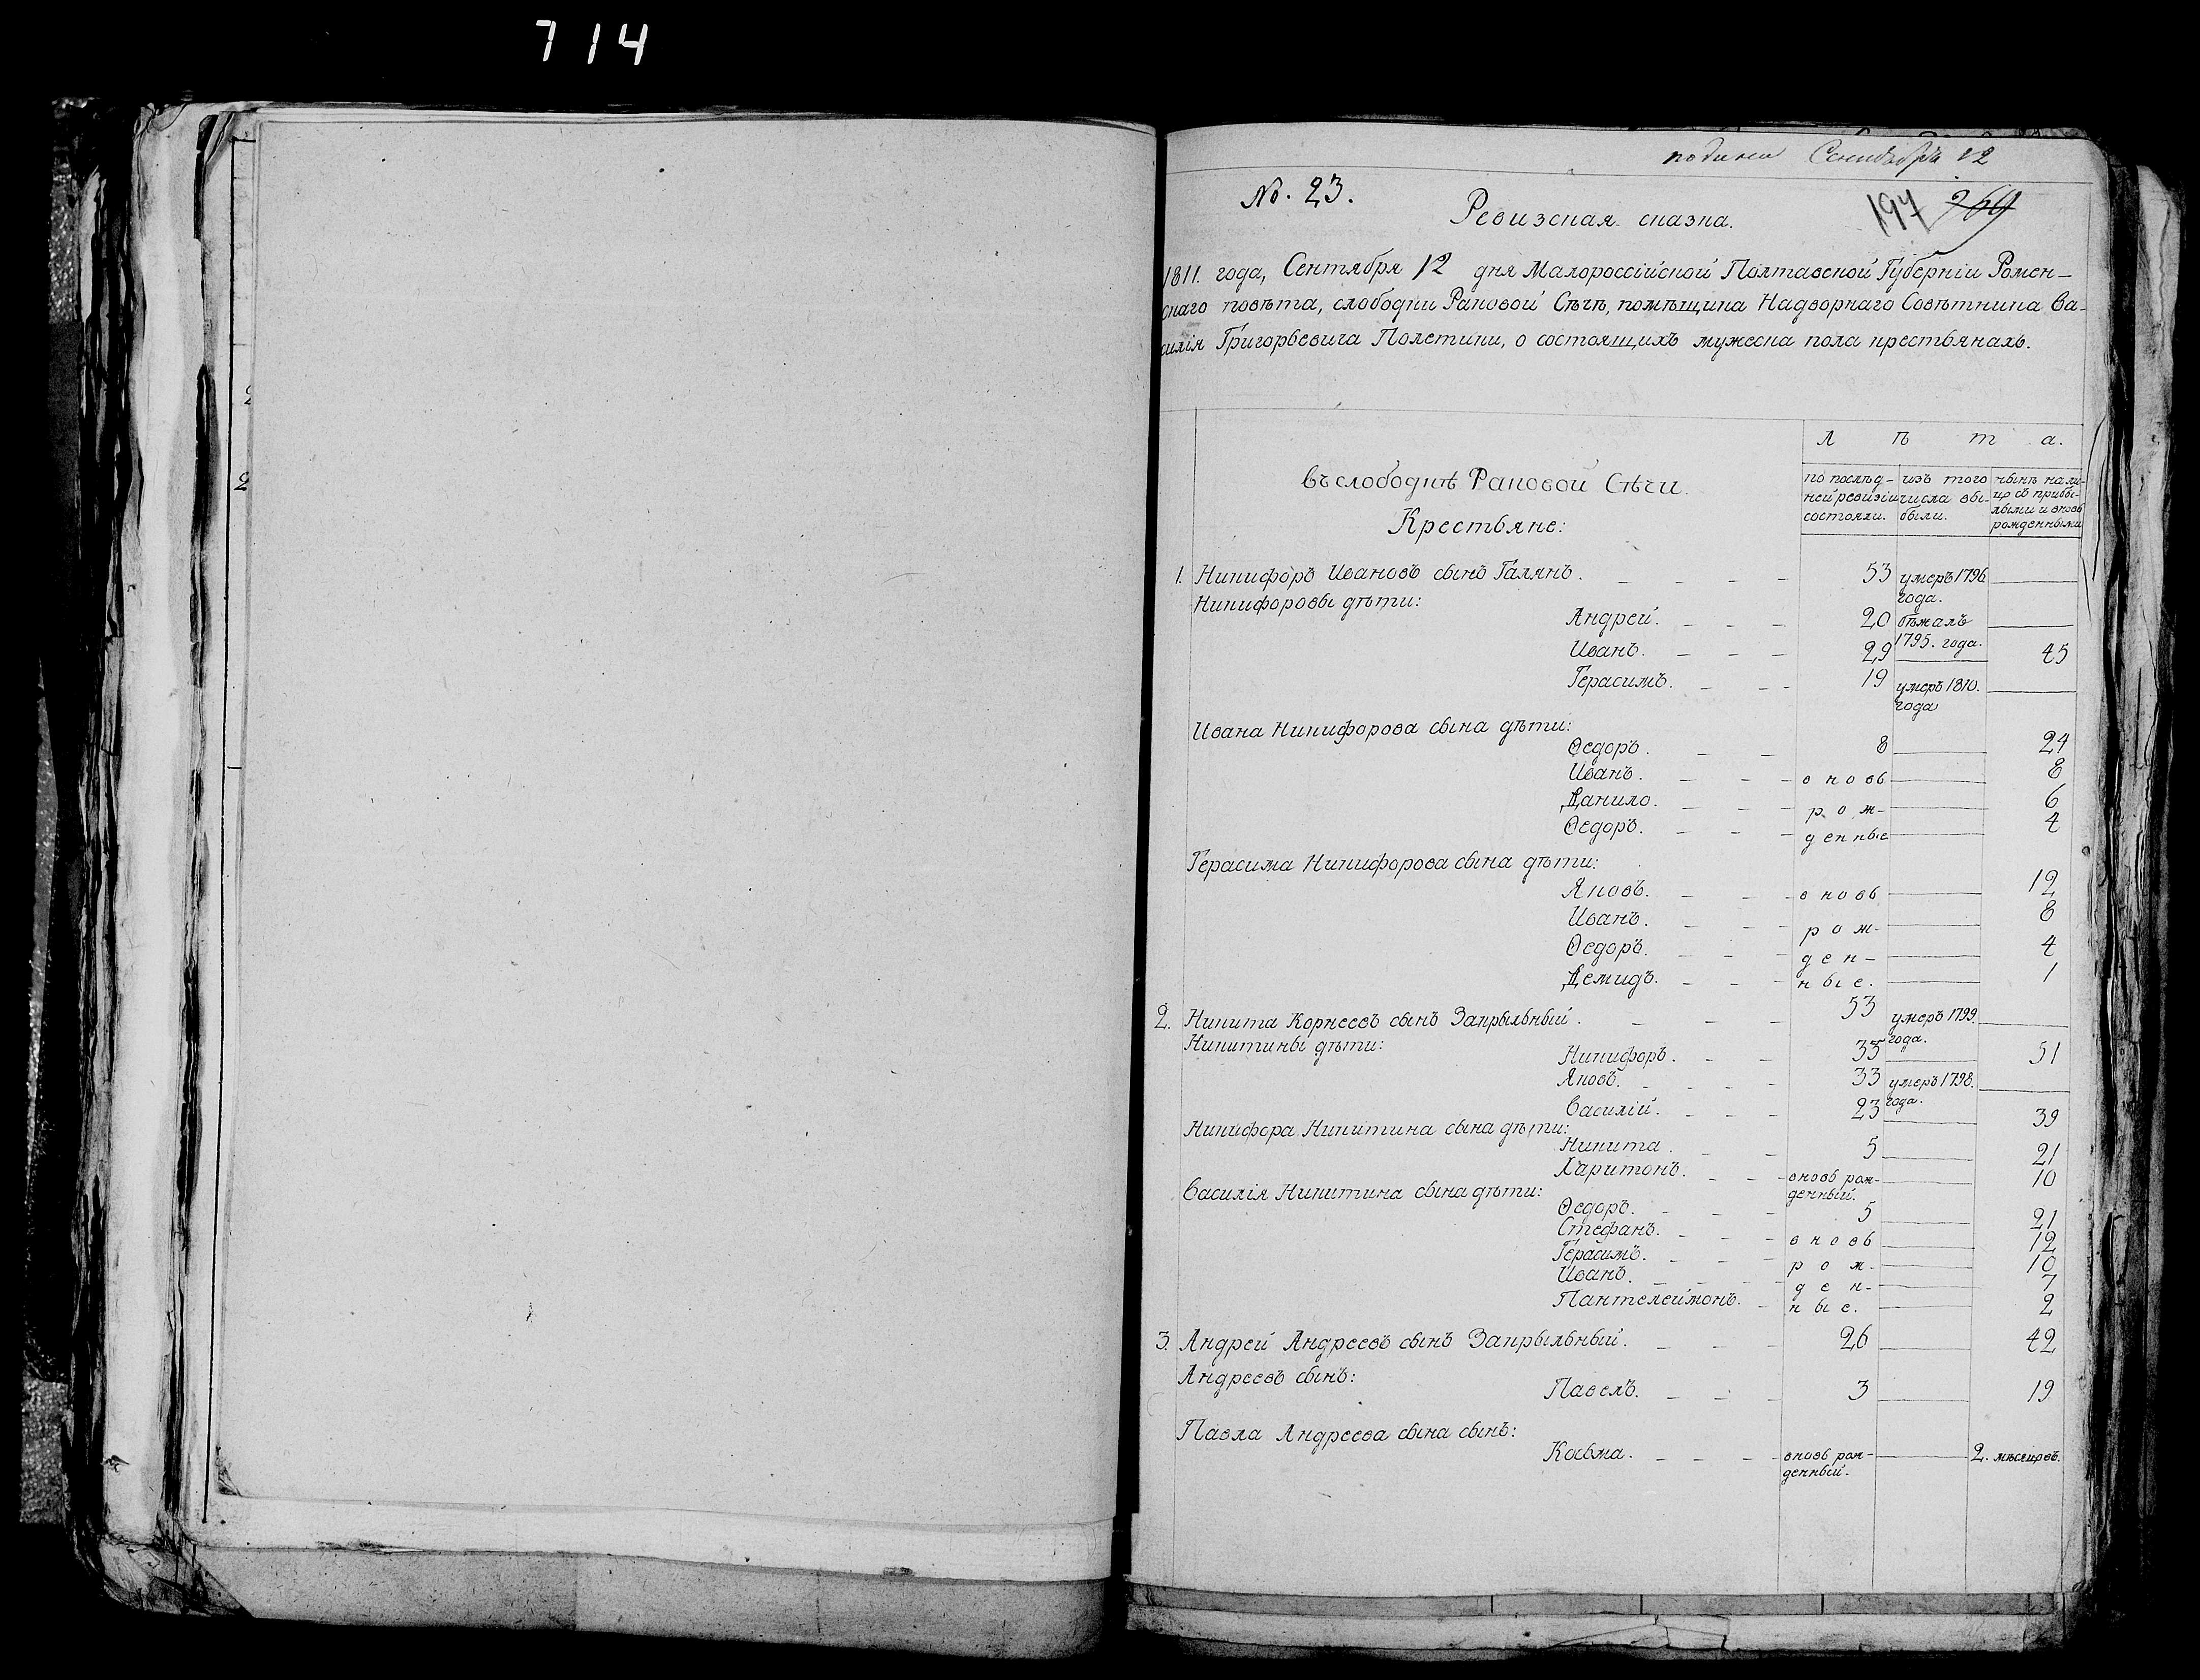 714
Сентября 12
№. 23.
Ревизская сказка.
197 269
1811. года, Сентября 12 дня Малороссійской Полтавской Губерніи Ромен-
скаго повѣта, слободки Раковой Сѣчѣ, помѣщика Надворнаго Совѣтника Ва-
силія Григорьевича Полетики, о состоящихъ мужеска пола крестьянахъ.
Л ѣ т а.
по послѣд-
ней ревизіи
состояли.
изъ того
числа вы-
были.
нынѣ на ли-
цо съ прибы-
лыми и вновь
рожденными
въ слободкѣ Раковой Сѣчи.
Крестьяне:
1. Никифоръ Ивановъ сынъ Галянъ. 53 умеръ 1796 года.
Никифоровы дѣти:
Андрей. 20 бѣжалъ 1795. года.
Иванъ. 29 45
Герасимъ. 19 умеръ 1810. года
Ивана Никифорова сына дѣти:
Ѳедоръ. 8 24
Иванъ. вновь 8
Данило. рож- 6
Ѳедоръ. денные 4
Герасима Никифорова сына дѣти:
Яковъ. вновь 12
Иванъ. рож- 8
Ѳедоръ. ден- 4
Демидъ. ные. 1
2. Никита Корнеевъ сынъ Закрыльный. 53 умеръ 1799. года.
Никитины дѣти:
Никифоръ. 35 51
Яковъ. 33 умеръ 1798. года.
Василій. 23 39
Никифора Никитина сына дѣти:
Никита. 5 21
Харитонъ. вновь рож-денный. 10
Василія Никитина сына дѣти:
Ѳедоръ. 5 21
Стефанъ. вновь 12
Герасимъ. рож- 10
Иванъ. ден- 7
Пантелеймонъ. ные. 2
3. Андрей Андреевъ сынъ Закрыльный. 26 42
Андреевъ сынъ:
Павелъ. 3 19
Павла Андреева сына сынъ:
Козма. вновь рож-денный. 2. мѣсяцовъ.